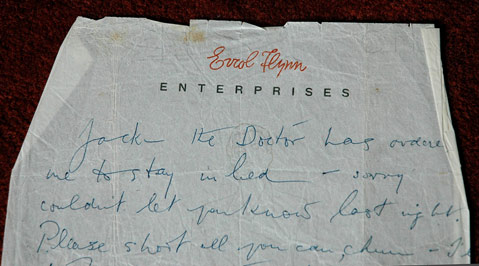 Errol Flynn
ENTERPRISES
Jack the Doctor has ordere
me to stay in bed – sorry
couldn't let you know last night.
Please shoot all you can, chum – I